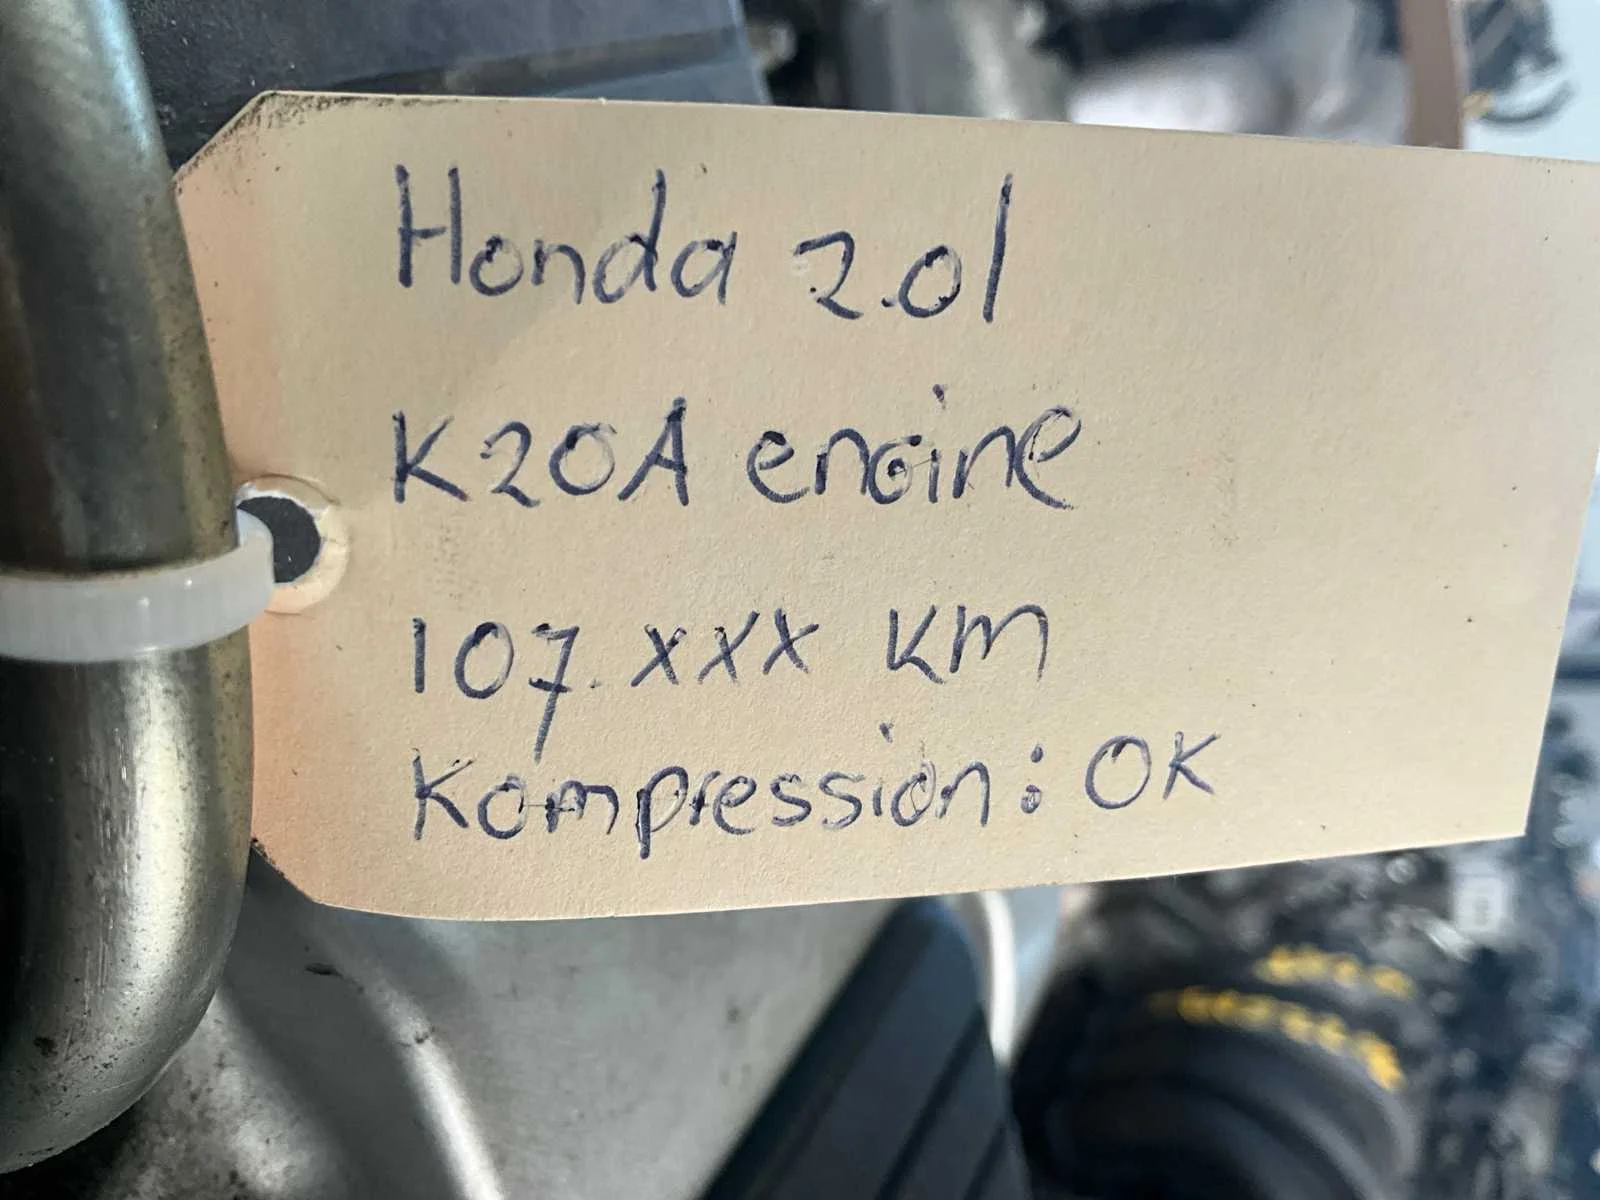 Honda 2.0l
K20A engine
107.xxx KM
Kompression: OK